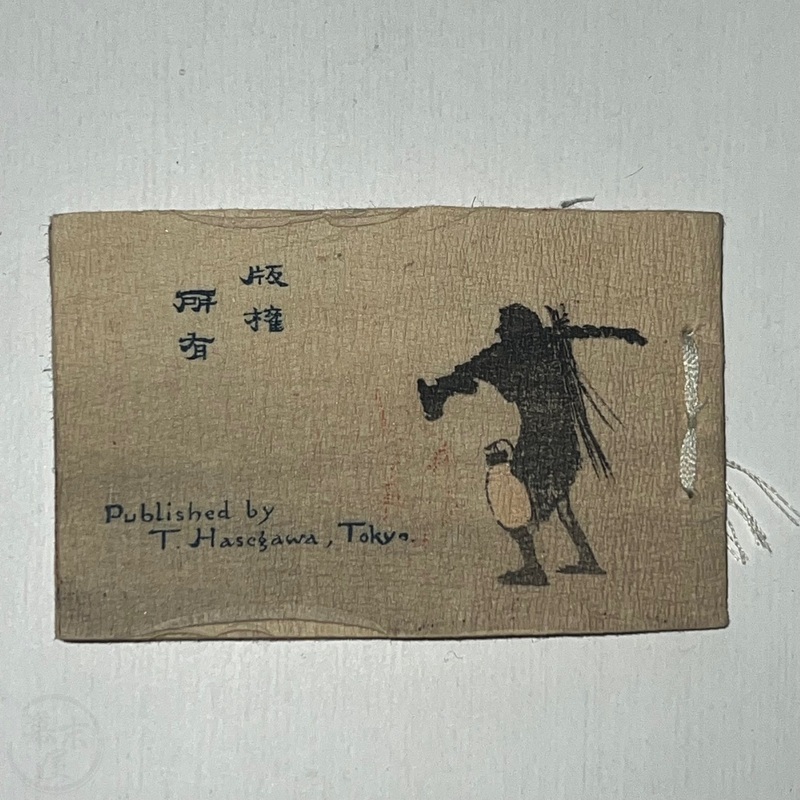 版權
所有
Published by
T. Hasegawa, Tokyo.